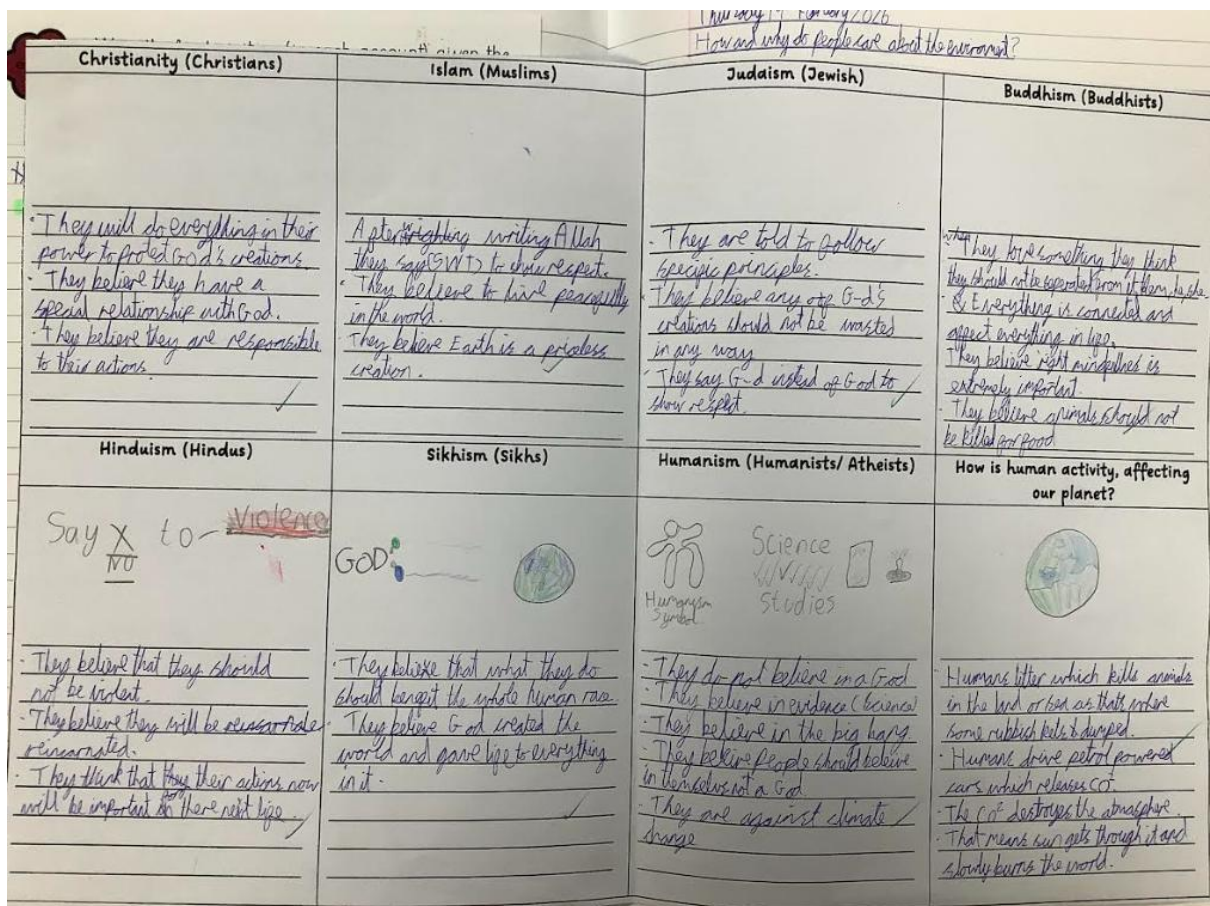 Thursday February 2026
How and why do people care about the environment?
Christianity (Christians)
· They will do everything in their
power to protect God's creations.
· They believe they have a
special relationship with God.
· They believe they are responsible
to their actions.
Islam (Muslims)
After wrighting writing Allah
they say (SWT) to show respect.
· They believe to live peacefully
in the world.
They believe Earth is a priceless
creation.
Judaism (Jewish)
· They are told to follow
specific principles.
· They believe any of G-d's
creations should not be wasted
in any way
· They say G-d instead of God to
show respect.
Buddhism (Buddhists)
When they love something they think
they should not be seperated from it, them, he, she.
& Everything is connected and
affect everything in life.
They believe right mindfulnes is
extremely important.
· They believe animals should not
be killed for food
Hinduism (Hindus)
Say X to - Violence
NO
· They believe that they should
not be violent.
· They believe they will be
reincarnated.
· They think that they their actions now
will be important for there next life.
Sikhism (Sikhs)
GOD
· They believe that what they do
should benefit the whole human race.
· They believe God created the
world and gave life to everything
in it.
Humanism (Humanists/ Atheists)
Science
Studies
Humanism
Symbol
· They do not believe in a God
· They believe in evidence (science)
· They believe in the big bang
· They believe people should beleive
in themselves not a God
· They are against climate
change
How is human activity, affecting
our planet?
· Humans litter which kills animals
in the land or sea as thats where
some rubbish gets dumped.
· Humans drive petrol powered
cars which releases CO².
· The CO² destroyes the atmosphere.
· That means sun gets through it and
slowly burns the world.